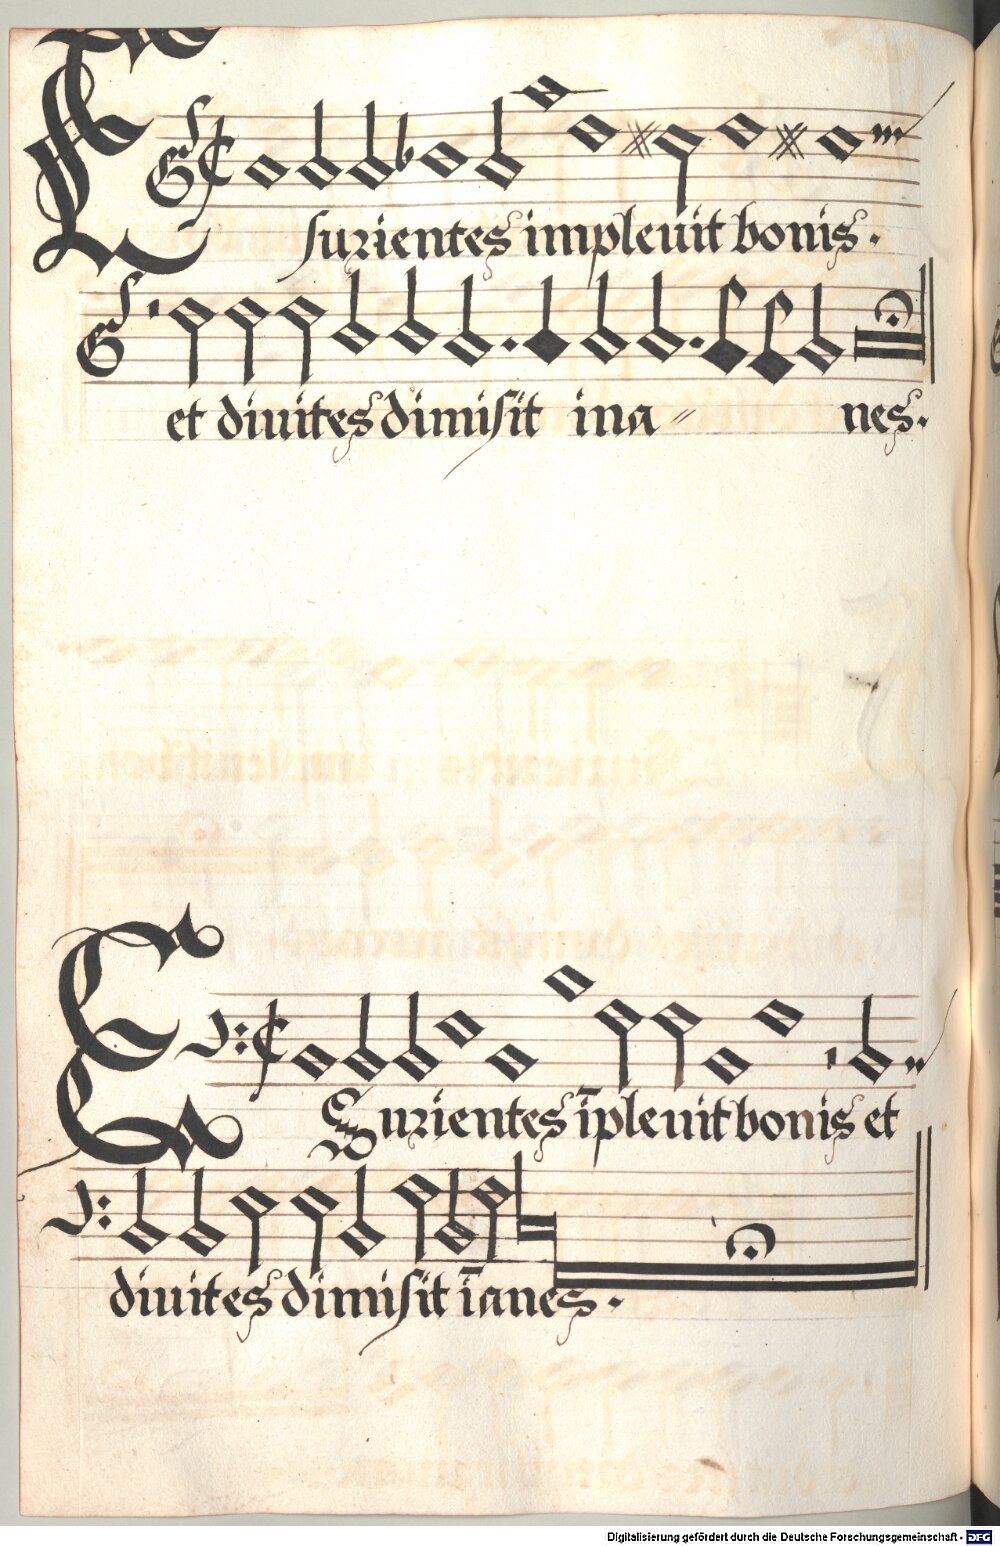 Esurientes impleuit bonis.
et diuites dimisit ina〃nes.
Esurientes īpleuit bonis et
diuites dimisit īanes.
Digitalisierung gefördert durch die Deutsche Forschungsgemeinschaft - DFG